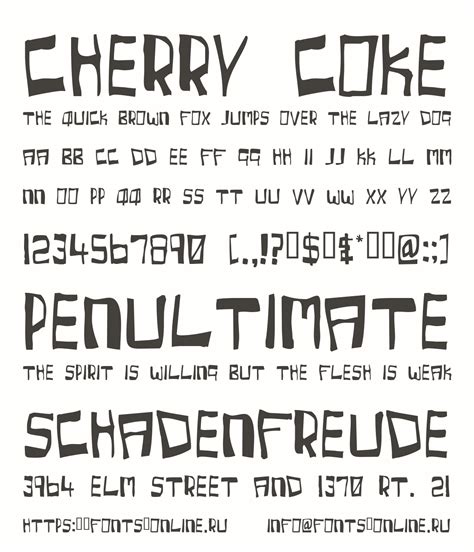 CHERRY COKE
THE QUICK BROWN FOX JUMPS OVER THE LAZY DOG
AA BB CC DD EE FF GG HH II JJ KK LL MM
NN OO PP QQ RR SS TT UU VV WW XX YY ZZ
1234567890 [.,!?▯$▯&*▯▯@:;]
PENULTIMATE
THE SPIRIT IS WILLING BUT THE FLESH IS WEAK
SCHADENFREUDE
3964 ELM STREET AND 1370 RT. 21
HTTPS:▯▯FONTS▯ONLINE.RU INFO@FONTS▯ONLINE.RU